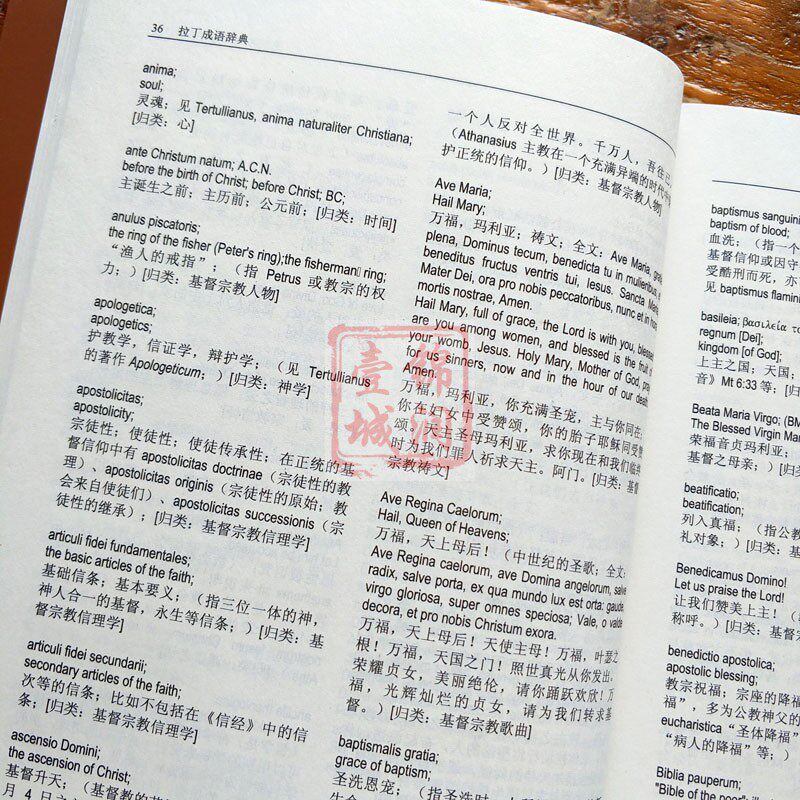 36 拉丁成语辞典
anima;
soul;
灵魂；见 Tertullianus, anima naturaliter Christiana;
[归类：心]
ante Christum natum; A.C.N.
before the birth of Christ; before Christ; BC;
主诞生之前；主历前；公元前；[归类：时间]
anulus piscatoris;
the ring of the fisher (Peter's ring);the fisherman ring;
“渔人的戒指”；（指 Petrus 或教宗的权
力；）[归类：基督宗教人物]
apologetica;
apologetics;
护教学，信证学，辩护学；（见 Tertullianus
的著作 Apologeticum；）[归类：神学]
apostolicitas;
apostolicity;
宗徒性；使徒性；使徒传承性；在正统的基
督信仰中有 apostolicitas doctrinae（宗徒性的教
理）、apostolicitas originis（宗徒性的原始；教
会来自使徒们）、apostolicitas successionis（宗
徒性的继承）；[归类：基督宗教信理学]
articuli fidei fundamentales;
the basic articles of the faith;
基础信条；基本要义；（指三位一体的神，
神人合一的基督，永生等信条；）[归类：基
督宗教信理学]
articuli fidei secundarii;
secondary articles of the faith;
次等的信条；比如不包括在《信经》中的信
条；[归类：基督宗教信理学]
ascensio Domini;
the ascension of Christ;
基督升天；（基督教的
月 4 日之
一个人反对全世界。千万人，吾往已
（Athanasius 主教在一个充满异端的时代中
护正统的信仰。）[归类：基督宗教人物]
Ave Maria;
Hail Mary;
万福，玛利亚；祷文；全文：Ave Maria, gratia
plena, Dominus tecum, benedicta tu in mulieribus, et
beneditus fructus ventris tui, Iesus. Sancta Maria
Mater Dei, ora pro nobis peccatoribus, nunc et in hora
mortis nostrae, Amen.
Hail Mary, full of grace, the Lord is with you, blessed
are you among women, and blessed is the fruit of
your womb, Jesus. Holy Mary, Mother of God, pray
for us sinners, now and in the hour of our death
Amen.
万福，玛利亚，你充满圣宠，主与你同在
你在妇女中受赞颂，你的胎子耶稣同受赞
颂。天主圣母玛利亚，求你现在和我们临终
时为我们罪人祈求天主。阿门。[归类：基督
宗教祷文]
Ave Regina Caelorum;
Hail, Queen of Heavens;
万福，天上母后！（中世纪的圣歌；全文：
Ave Regina caelorum, ave Domina angelorum, salve
radix, salve porta, ex qua mundo lux est orta: gaude
virgo gloriosa, super omnes speciosa; Vale, o valde
decora, et pro nobis Christum exora.
万福，天上母后！天使主母！万福，叶瑟之
根！万福，天国之门！照世真光从你发出，
荣耀贞女，美丽绝伦，请你踊跃欢欣！万
福，光辉灿烂的贞女，请为我们转求基
督。）[归类：基督宗教歌曲]
baptismalis gratia;
grace of baptism;
圣洗恩宠；（指圣洗时
baptismus sanguini
baptism of blood;
血洗；（指一个
基督信仰或因守
受酷刑而死，亦
见 baptismus flamin
basileia; βασιλεία το
regnum [Dei];
kingdom [of God];
上主之国；天国；
音》Mt 6:33 等；[归
Beata Maria Virgo; (BM
The Blessed Virgin Mar
荣福音贞玛利亚；
基督之母亲；）[归
beatificatio;
beatification;
列入真福；（指公教
礼对象；）[归类：基
Benedicamus Domino!
Let us praise the Lord!
让我们赞美上主！（
称呼。）[归类：基督
benedictio apostolica;
apostolic blessing;
教宗祝福；宗座的降福
福”，多为公教神父的
eucharistica “圣体降福”
“病人的降福”等；）
Biblia pauperum;
"Bible of the poor";
壹城